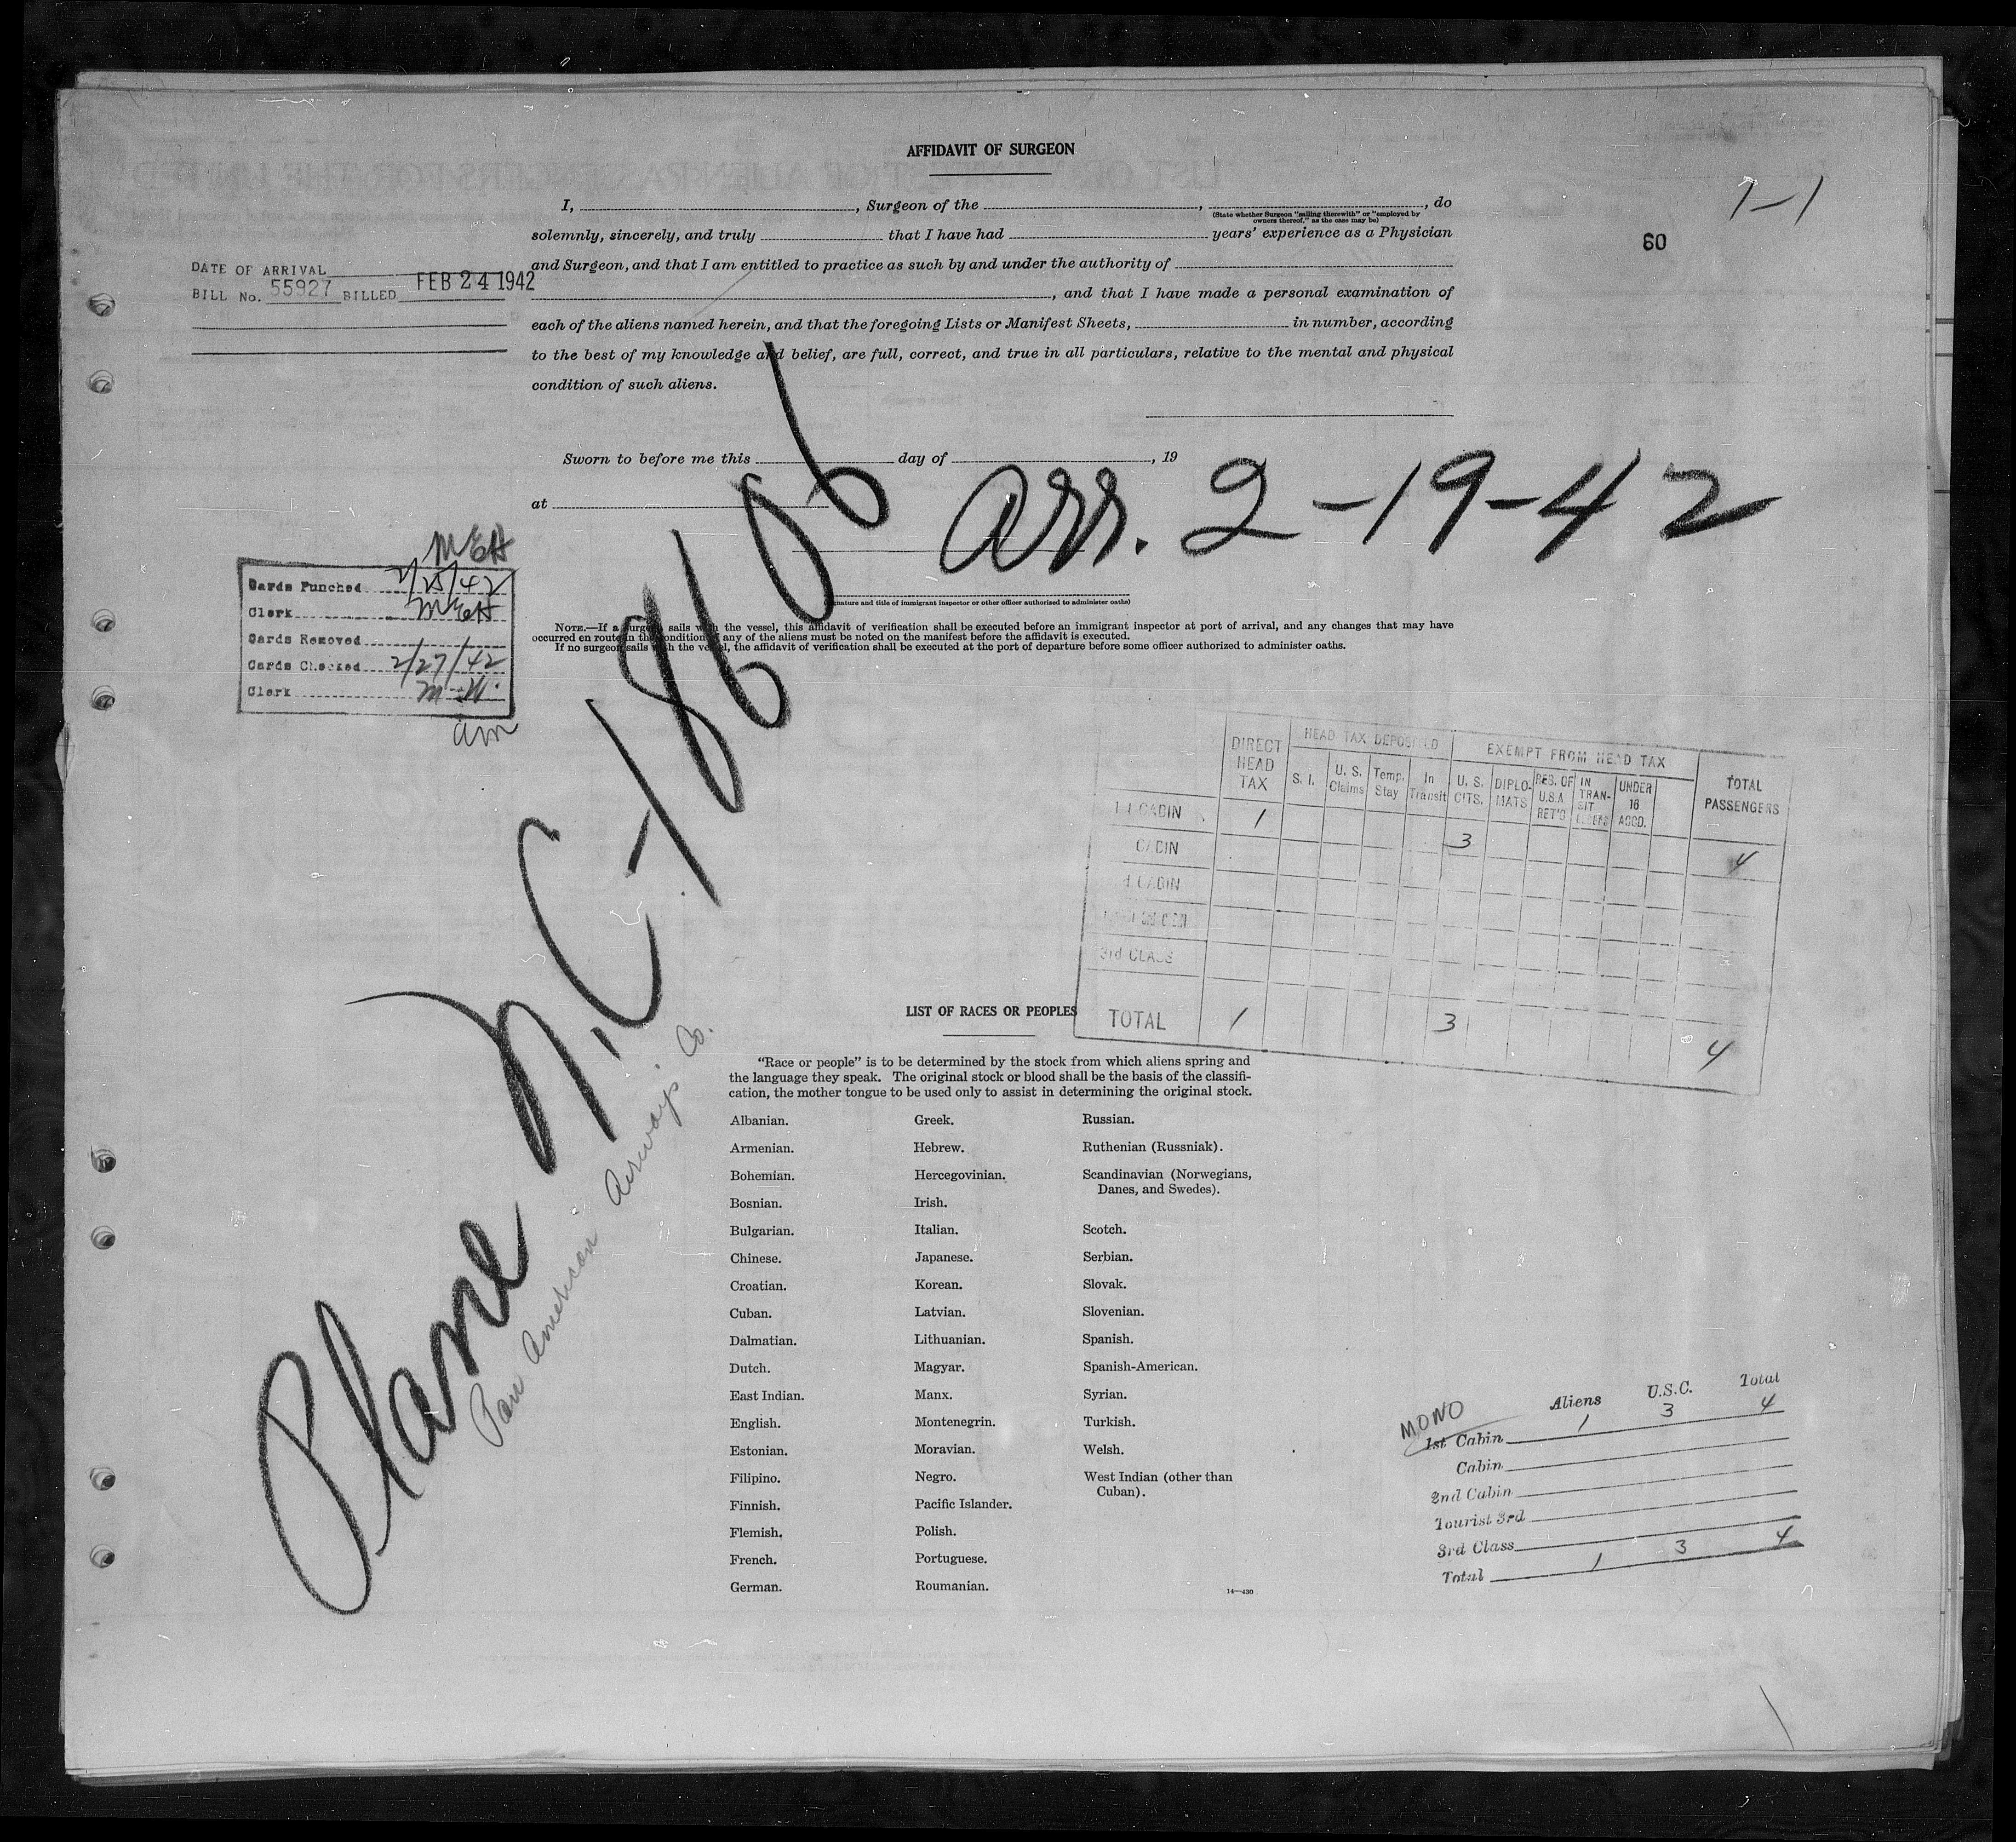 AFFIDAVIT OF SURGEON
1-1
60
I, , Surgeon of the , , do
(State whether Surgeon "sailing therewith" or "employed by owners thereof," as the case may be)
solemnly, sincerely, and truly that I have had years' experience as a Physician
and Surgeon, and that I am entitled to practice as such by and under the authority of
, and that I have made a personal examination of
each of the aliens named herein, and that the foregoing Lists or Manifest Sheets, in number, according
to the best of my knowledge and belief, are full, correct, and true in all particulars, relative to the mental and physical
condition of such aliens.
DATE OF ARRIVAL
BILL No. 55927 BILLED FEB 24 1942
Sworn to before me this day of , 19
at
arr. 2-19-42
(Signature and title of immigrant inspector or other officer authorized to administer oaths)
NOTE.—If a surgeon sails with the vessel, this affidavit of verification shall be executed before an immigrant inspector at port of arrival, and any changes that may have
occurred en route in the condition of any of the aliens must be noted on the manifest before the affidavit is executed.
If no surgeon sails with the vessel, the affidavit of verification shall be executed at the port of departure before some officer authorized to administer oaths.
MEH
Cards Punched 2/25/42
Clerk MEH
Cards Removed
Cards Checked 2/27/42
Clerk M.W.
am
Plane N.C-18606
Pan American Airways Co.
DIRECT HEAD TAX
HEAD TAX DEPOSITED
EXEMPT FROM HEAD TAX
TOTAL PASSENGERS
S. I.
U. S. Claims
Temp. Stay
In Transit
U. S. CITS.
DIPLOMATS
RES. OF U.S.A. RET'G
IN TRANSIT
UNDER 16 ACCD.
CABIN 1
CABIN 3 4
CABIN
3rd CLASS
TOTAL 1 3 4
LIST OF RACES OR PEOPLES
"Race or people" is to be determined by the stock from which aliens spring and
the language they speak. The original stock or blood shall be the basis of the classifi-
cation, the mother tongue to be used only to assist in determining the original stock.
Albanian.
Armenian.
Bohemian.
Bosnian.
Bulgarian.
Chinese.
Croatian.
Cuban.
Dalmatian.
Dutch.
East Indian.
English.
Estonian.
Filipino.
Finnish.
Flemish.
French.
German.
Greek.
Hebrew.
Hercegovinian.
Irish.
Italian.
Japanese.
Korean.
Latvian.
Lithuanian.
Magyar.
Manx.
Montenegrin.
Moravian.
Negro.
Pacific Islander.
Polish.
Portuguese.
Roumanian.
Russian.
Ruthenian (Russniak).
Scandinavian (Norwegians,
Danes, and Swedes).
Scotch.
Serbian.
Slovak.
Slovenian.
Spanish.
Spanish-American.
Syrian.
Turkish.
Welsh.
West Indian (other than
Cuban).
14—430
Aliens U.S.C. Total
MONO
1st Cabin 1 3 4
Cabin
2nd Cabin
Tourist 3rd
3rd Class
Total 1 3 4